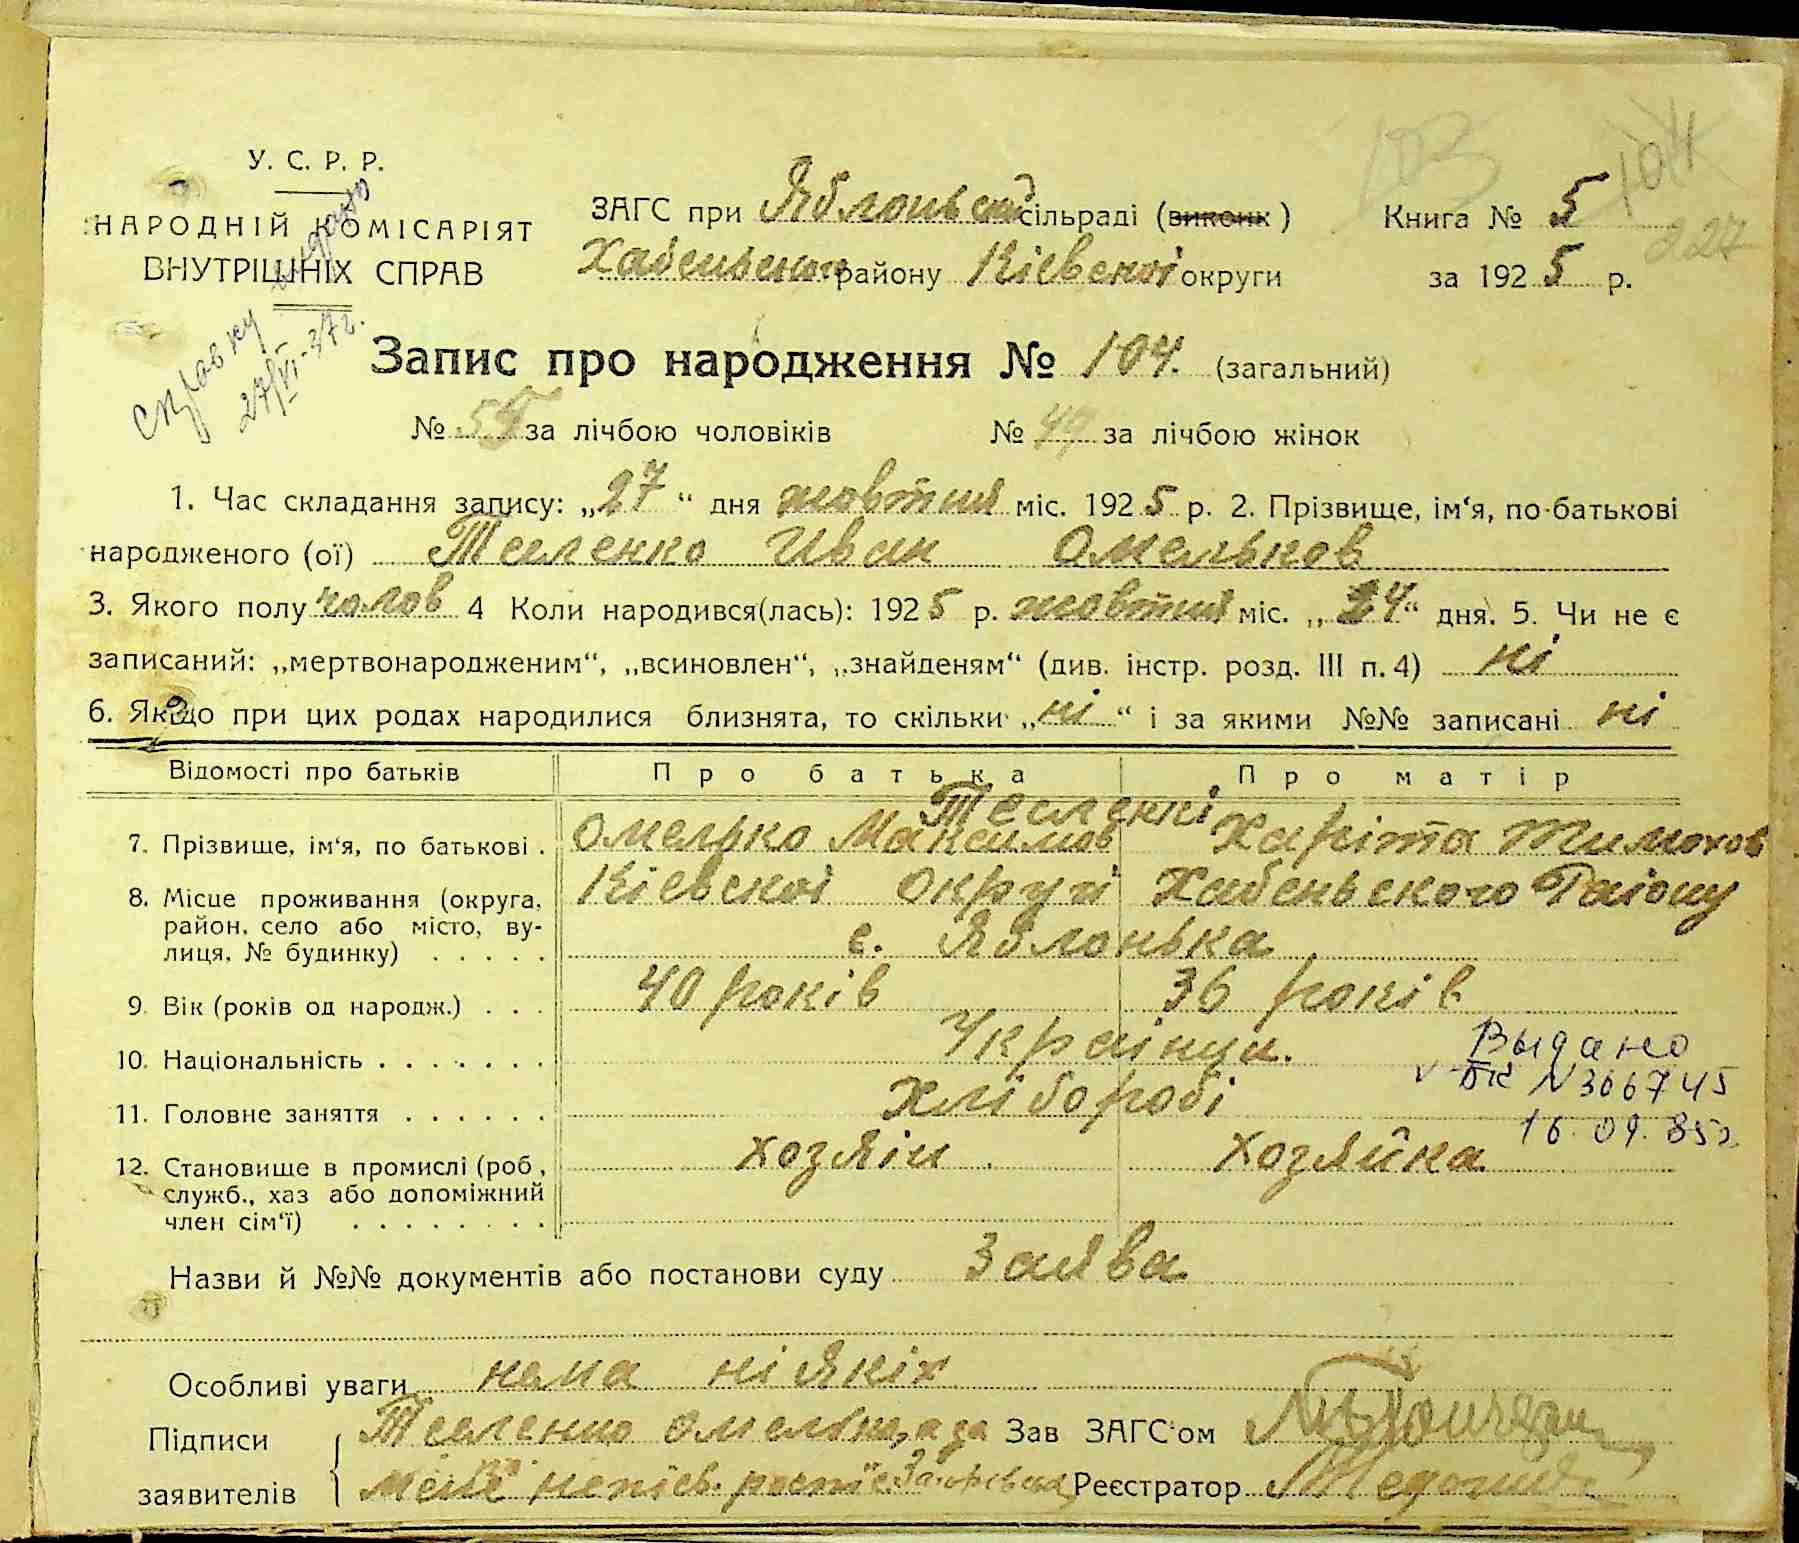 У. С. Р. Р.
НАРОДНІЙ КОМІСАРІЯТ
ВНУТРІШНІХ СПРАВ
Справку выдано
27/VI-37г.
ЗАГС при Яблоньской сільраді (виконк)
Хабеньского району Кіевскої округи
Книга № 5
227
за 1925 р.
Запис про народження № 104. (загальний)
№ 55 за лічбою чоловіків № 49 за лічбою жінок
1. Час складання запису: „27“ дня жовтня міс. 1925 р. 2. Прізвище, ім‘я, по-батькові
народженого (ої) Тесленко Иван Омельков
3. Якого полу чолов 4 Коли народився(лась): 1925 р. жовтня міс. „24“ дня. 5. Чи не є
записаний: „мертвонародженим“, „всиновлен“, „знайденям“ (див. інстр. розд. III п. 4) ні
6. Якщо при цих родах народилися близнята, то скільки „ні“ і за якими №№ записані ні
Відомості про батьків Про батька Про матір
Тесленкі
7. Прізвище, ім‘я, по батькові . Омелько Максимов Харіта Тимохов
8. Місце проживання (округа, Кіевскої Округі Хабеньского Району
район, село або місто, ву-
лиця, № будинку) . . . . . с. Яблонька
9. Вік (років од народж.) . . . 40 років 36 років
10. Національність . . . . . . . Українци.
Выдано
БК N 366745
11. Головне заняття . . . . . . Хлібороbі
16.09.85г
12. Становище в промислі (роб, хозяін хозяйка
служб., хаз або допоміжний
член сім‘ї) . . . . . . . .
Назви й №№ документів або постанови суду Заява
Особливі уваги нема ніякіх
Підписи заявителів
Тесленко Омелько, а за Зав ЗАГС‘ом
непісь. Реєстратор